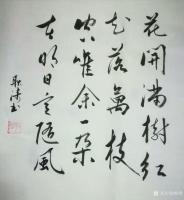 花開滿樹紅
花落萬枝
空唯餘一朵
在明日定隨風
耿濤書